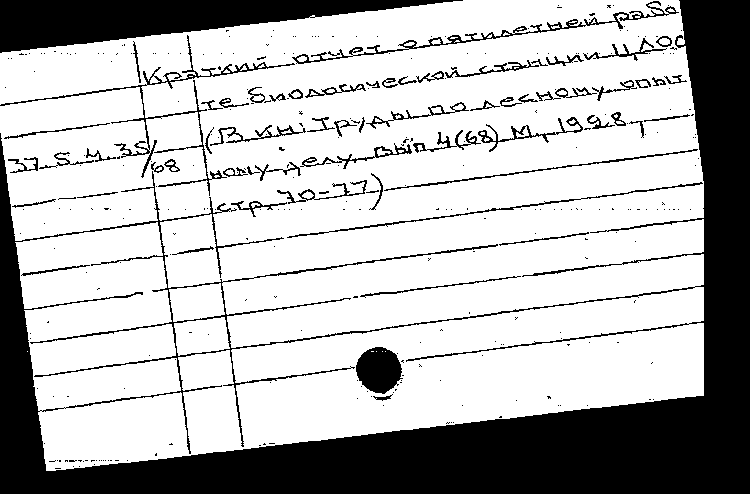 Краткий отчет о пятилетней рабо
те биологической станции ЦЛОС
(В кн: Труды по лесному опыт
37.5.4.35/68
ному делу. вып. 4(68) М., 1928,
стр. 70-77)